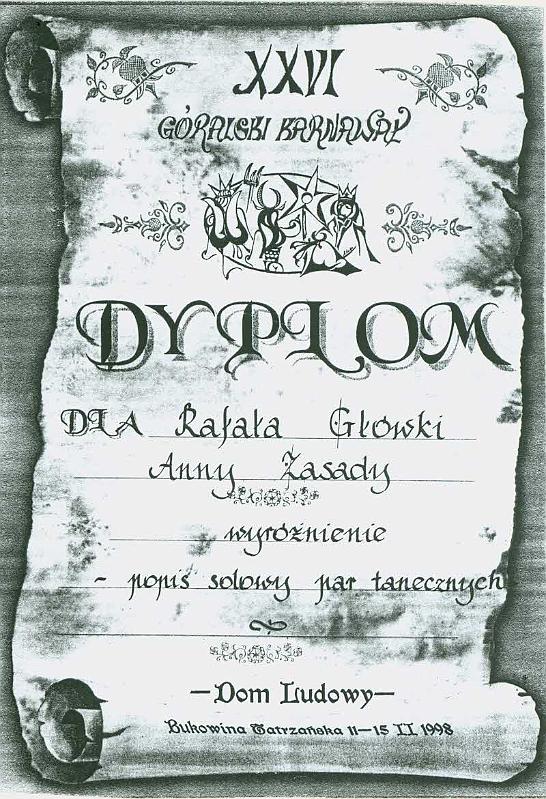 XXVI
GÓRALSKI KARNAWAŁ
DYPLOM
DLA Rafała Głowki
Anny Zasady
wyróżnienie
- popis solowy par tanecznych
—Dom Ludowy—
Bukowina Tatrzańska 11—15 II 1998